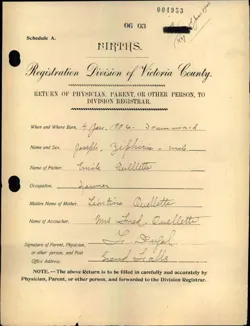 06 03
004953
Schedule A.
BIRTHS.
Registration Division of Victoria County.
RETURN OF PHYSICIAN, PARENT, OR OTHER PERSON, TO
DIVISION REGISTRAR.
When and Where Born, 4 Jan. 1906. Drummond
Name and Sex, Joseph, Zephirin - male
Name of Father, Ouellette
Occupation, Farmer
Maiden Name of Mother, Ouellette
Name of Accoucher, Mrs Fred. Ouellette
Signature of Parent, Physician,
or other person, and Post
Office Address. Grand Falls
NOTE.—The above Return is to be filled in carefully and accurately by
Physician, Parent, or other person, and forwarded to the Division Registrar.